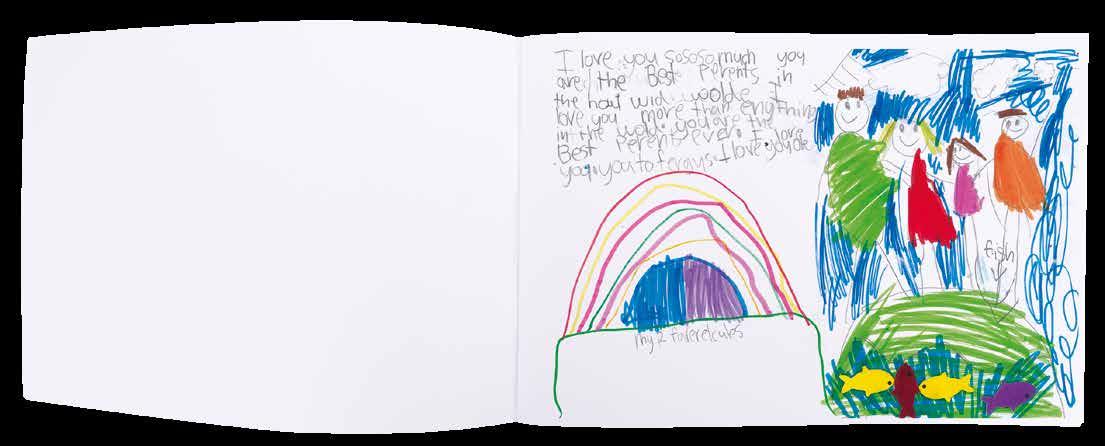 I love you sososo much you
are the Best Perents in
the hout wid woolde I
love you more than enything
in the wold. you are the
Best Perents ever. I love
you. you to fergus. I love you
fish
my 2